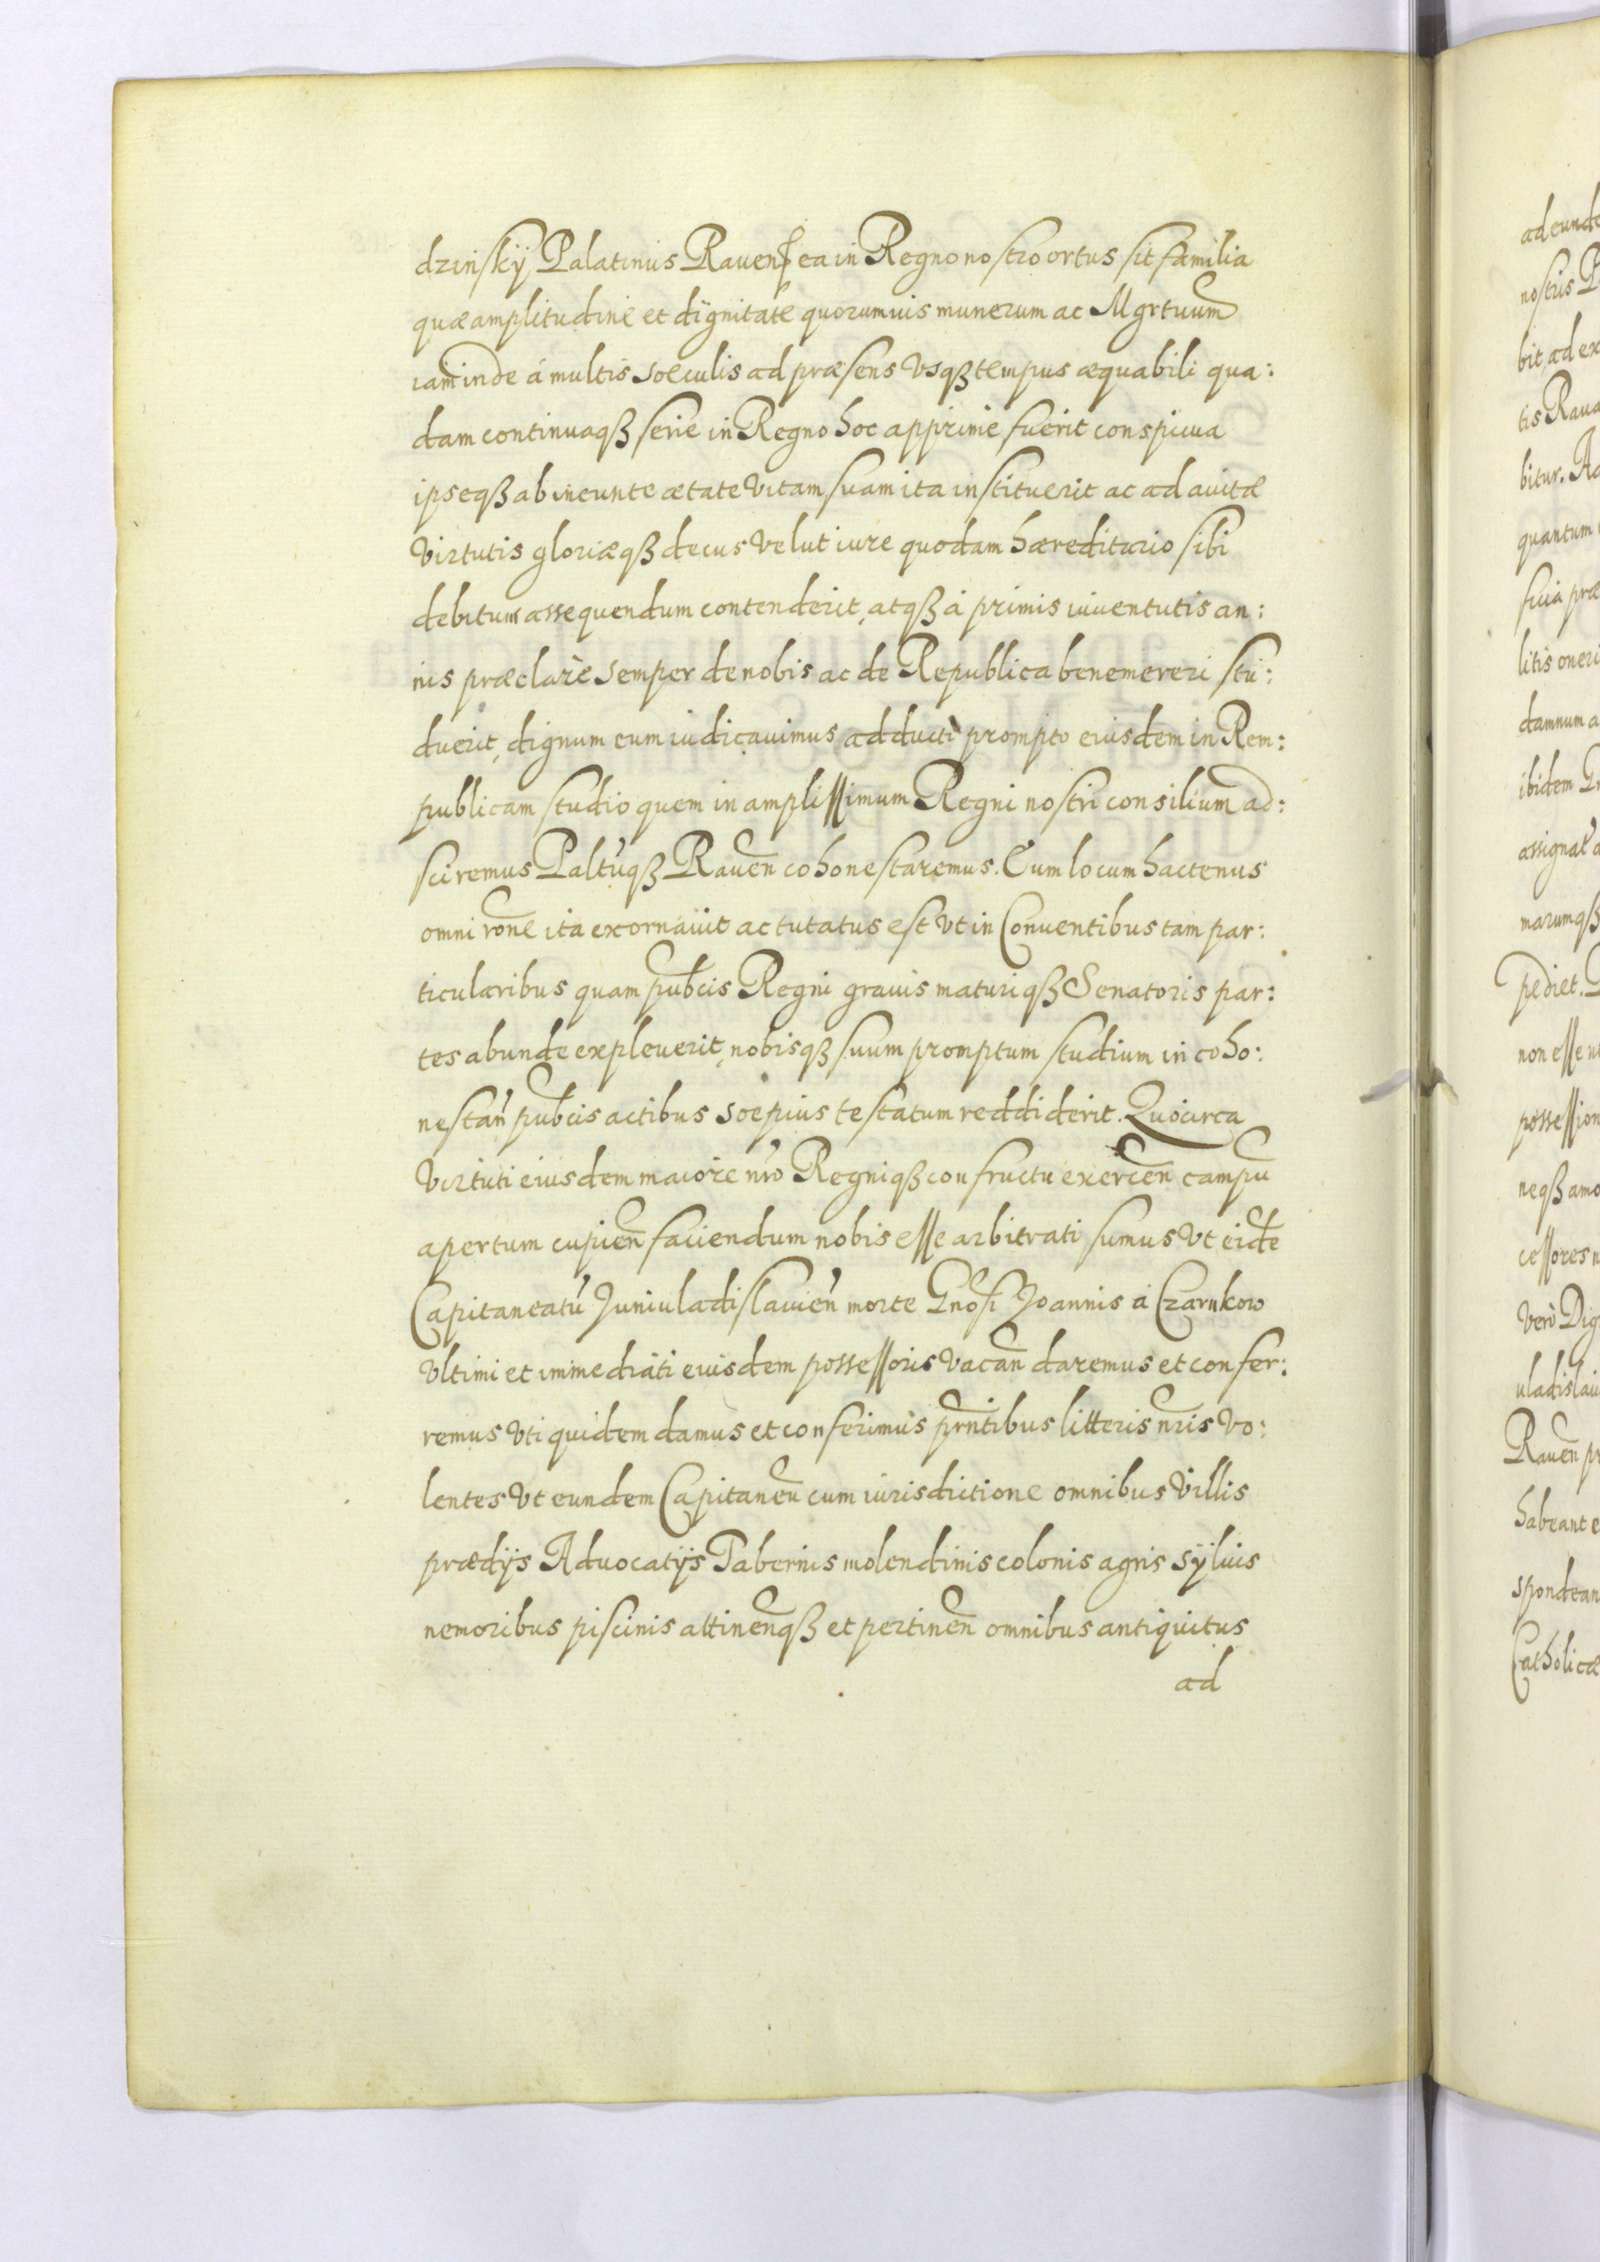 dzinskÿ Palatinus Rauens ea in Regno nostro ortus sit familia
quæ amplitudine et dignitate quorumuis munerum ac Mgrtuum
iam inde á multis sœculis ad præsens vsqß tempus æquabili qua:
dam continuaqß serie in Regno hoc apprime fuerit conspicua
ipseqß ab ineunte ætate vitam suam ita instituerit ac ad auitæ
virtutis gloriæqß decus velut iure quodam hæreditario sibi
debitum assequendum contenderit, atqß á primis iuuentutis an:
nis præclarè semper de nobis ac de Republica benemereri stu:
duerit, dignum eum iudicauimus adducti prompto eiusdem in Rem:
publicam studio quem in amplissimum Regni nostri consilium ad:
sciremus Paltuqß Rauen cohonestaremus. Cum locum hactenus
omni rone ita exornauit ac tutatus est vt in Conuentibus tam par:
ticularibus quam pubcis Regni grauis maturiqß Senatoris par:
tes abunde expleuerit, nobisqß suum promptum studium in coho:
nestan pubcis actibus sœpius testatum reddiderit. Quocirca
virtuti eiusdem maiore nro Regniqß con fructu exercen campu
apertum cupien faciendum nobis esse arbitrati sumus vt eide
Capitaneatu Juniuladislauien morte Gnosi Joannis á Czarnkow
vltimi et immediati eiusdem possessoris vacan daremus et confer:
remus vti quidem damus et conferimus prntibus litteris nris vo:
lentes vt eundem Capitaneu cum iurisdictione omnibus villis
prædijs Aduocatijs Tabernis molendinis colonis agris sÿluis
nemoribus piscinis attinenqß et pertinen omnibus antiquitus
ad
ad eunde
nostris
bit, ad ex
tis Raua
bitur.
quantum
ficia præ
litis oneri
damnum a
ibidem
assignat
marumqß
pediet.
non esse
possession
neqß amo
cessores
vero Dig
uladislau
Rauen
habeant
spondean
Catholicæ